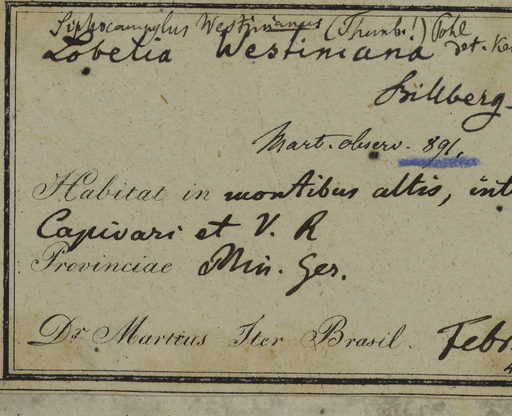 Siphocampylus Westinianus (Thunb.!) Pohl
Lobelia Westiniana det. Ke
Billberg.
Mart. observ. 891,
Habitat in montibus altis, int
Capivari et V. R
Provinciae Min. Ger.
Dr. Martius Iter Brasil. Febr